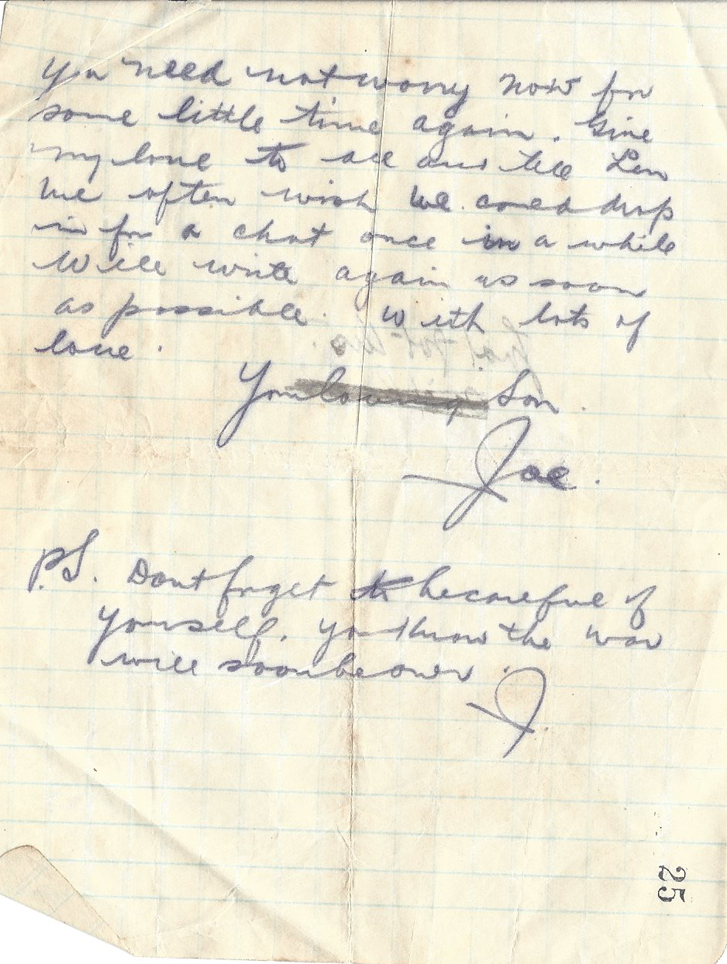 you need not worry now for
some little time again. Give
my love to all and tell Len
we often wish we could drop
in for a chat once in a while
Will write again as soon
as possible. With lots of
love.
Your loving Son.
Joe.
P.S. Dont forget to be careful of
yourself, you know the war
will soon be over.
J.
25